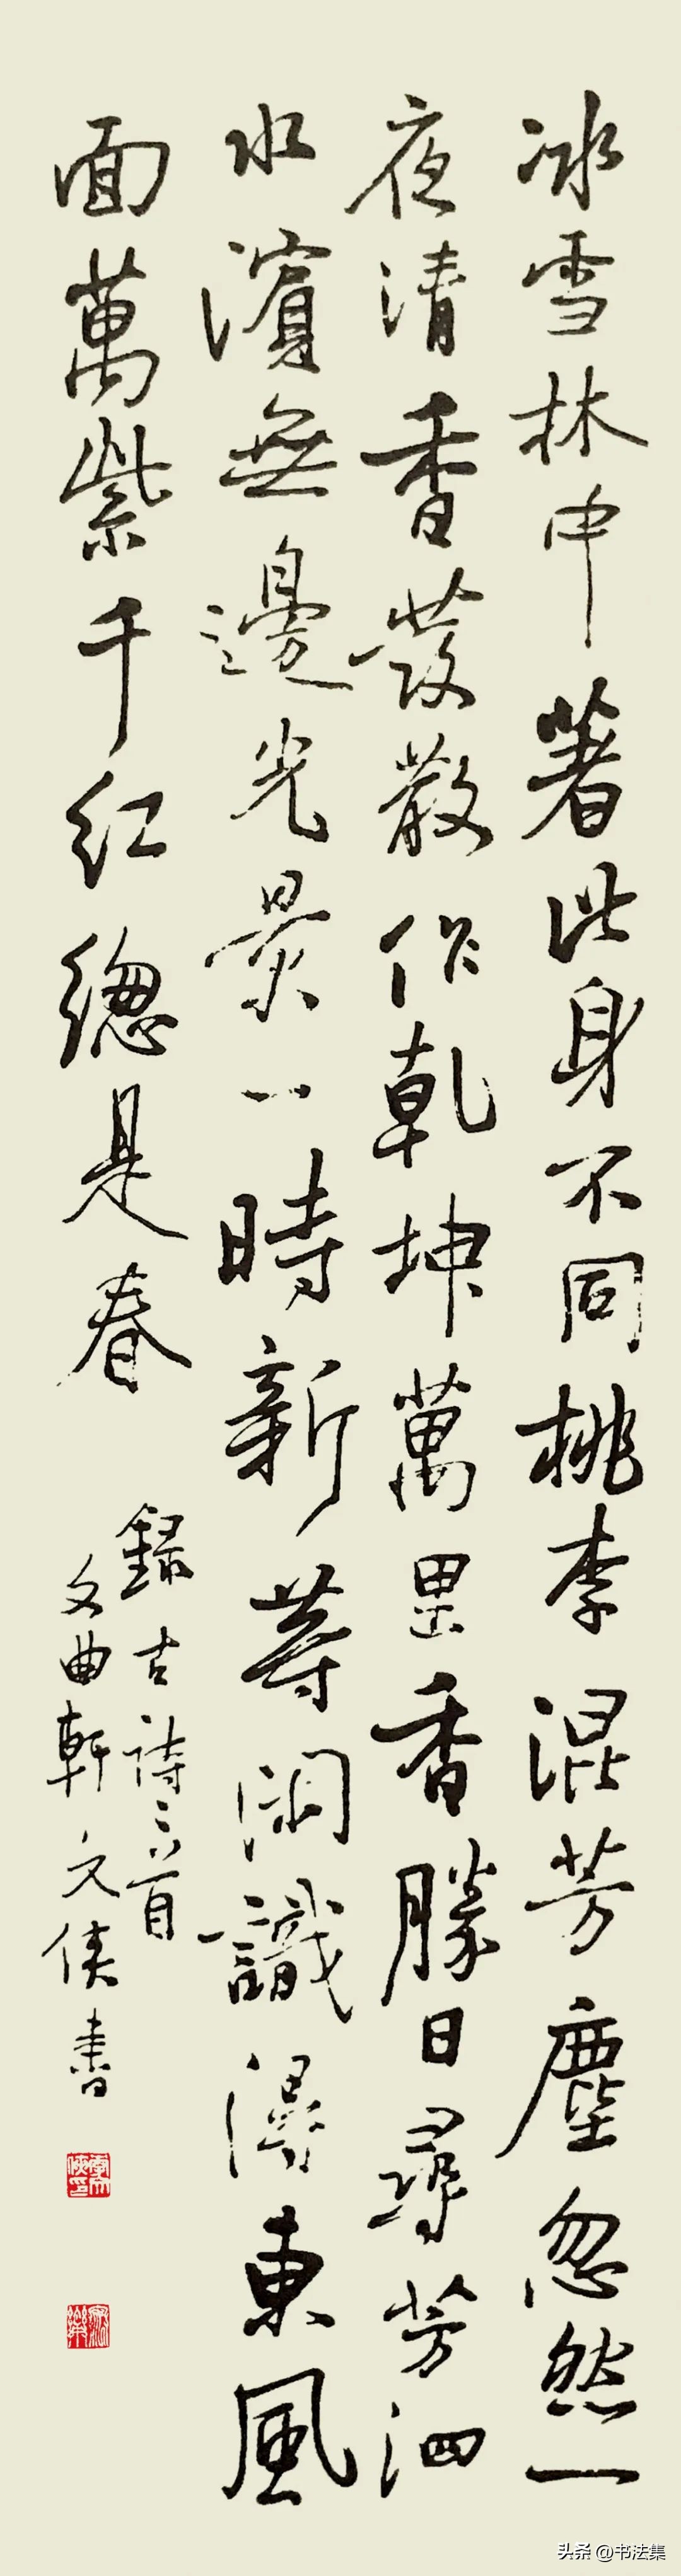 冰雪林中著此身不同桃李混芳塵忽然一
夜清香發散作乾坤萬里香勝日尋芳泗
水濱無邊光景一時新等閑識得東風
面萬紫千紅總是春
錄古詩二首
文曲軒文俠書
头条 @书法集